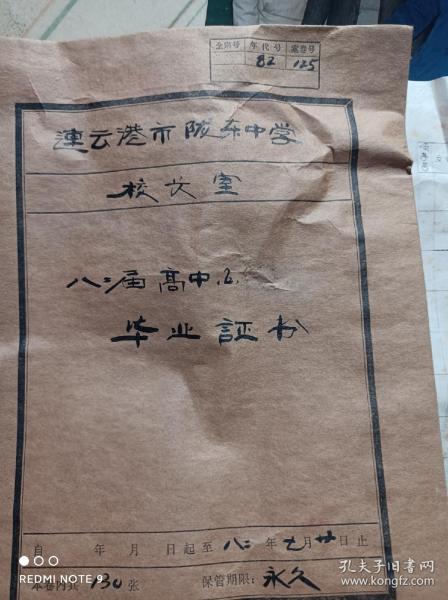 全宗号 年代号 案卷号
82 125
連云港市陇东中学
校长室
八二届高中.6.
毕业証书
自 年 月 日起至 八二 年 七月 廿 日止
本卷内共 130 张 保管期限： 永久
REDMI NOTE 9
孔夫子旧书网
www.kongfz.com